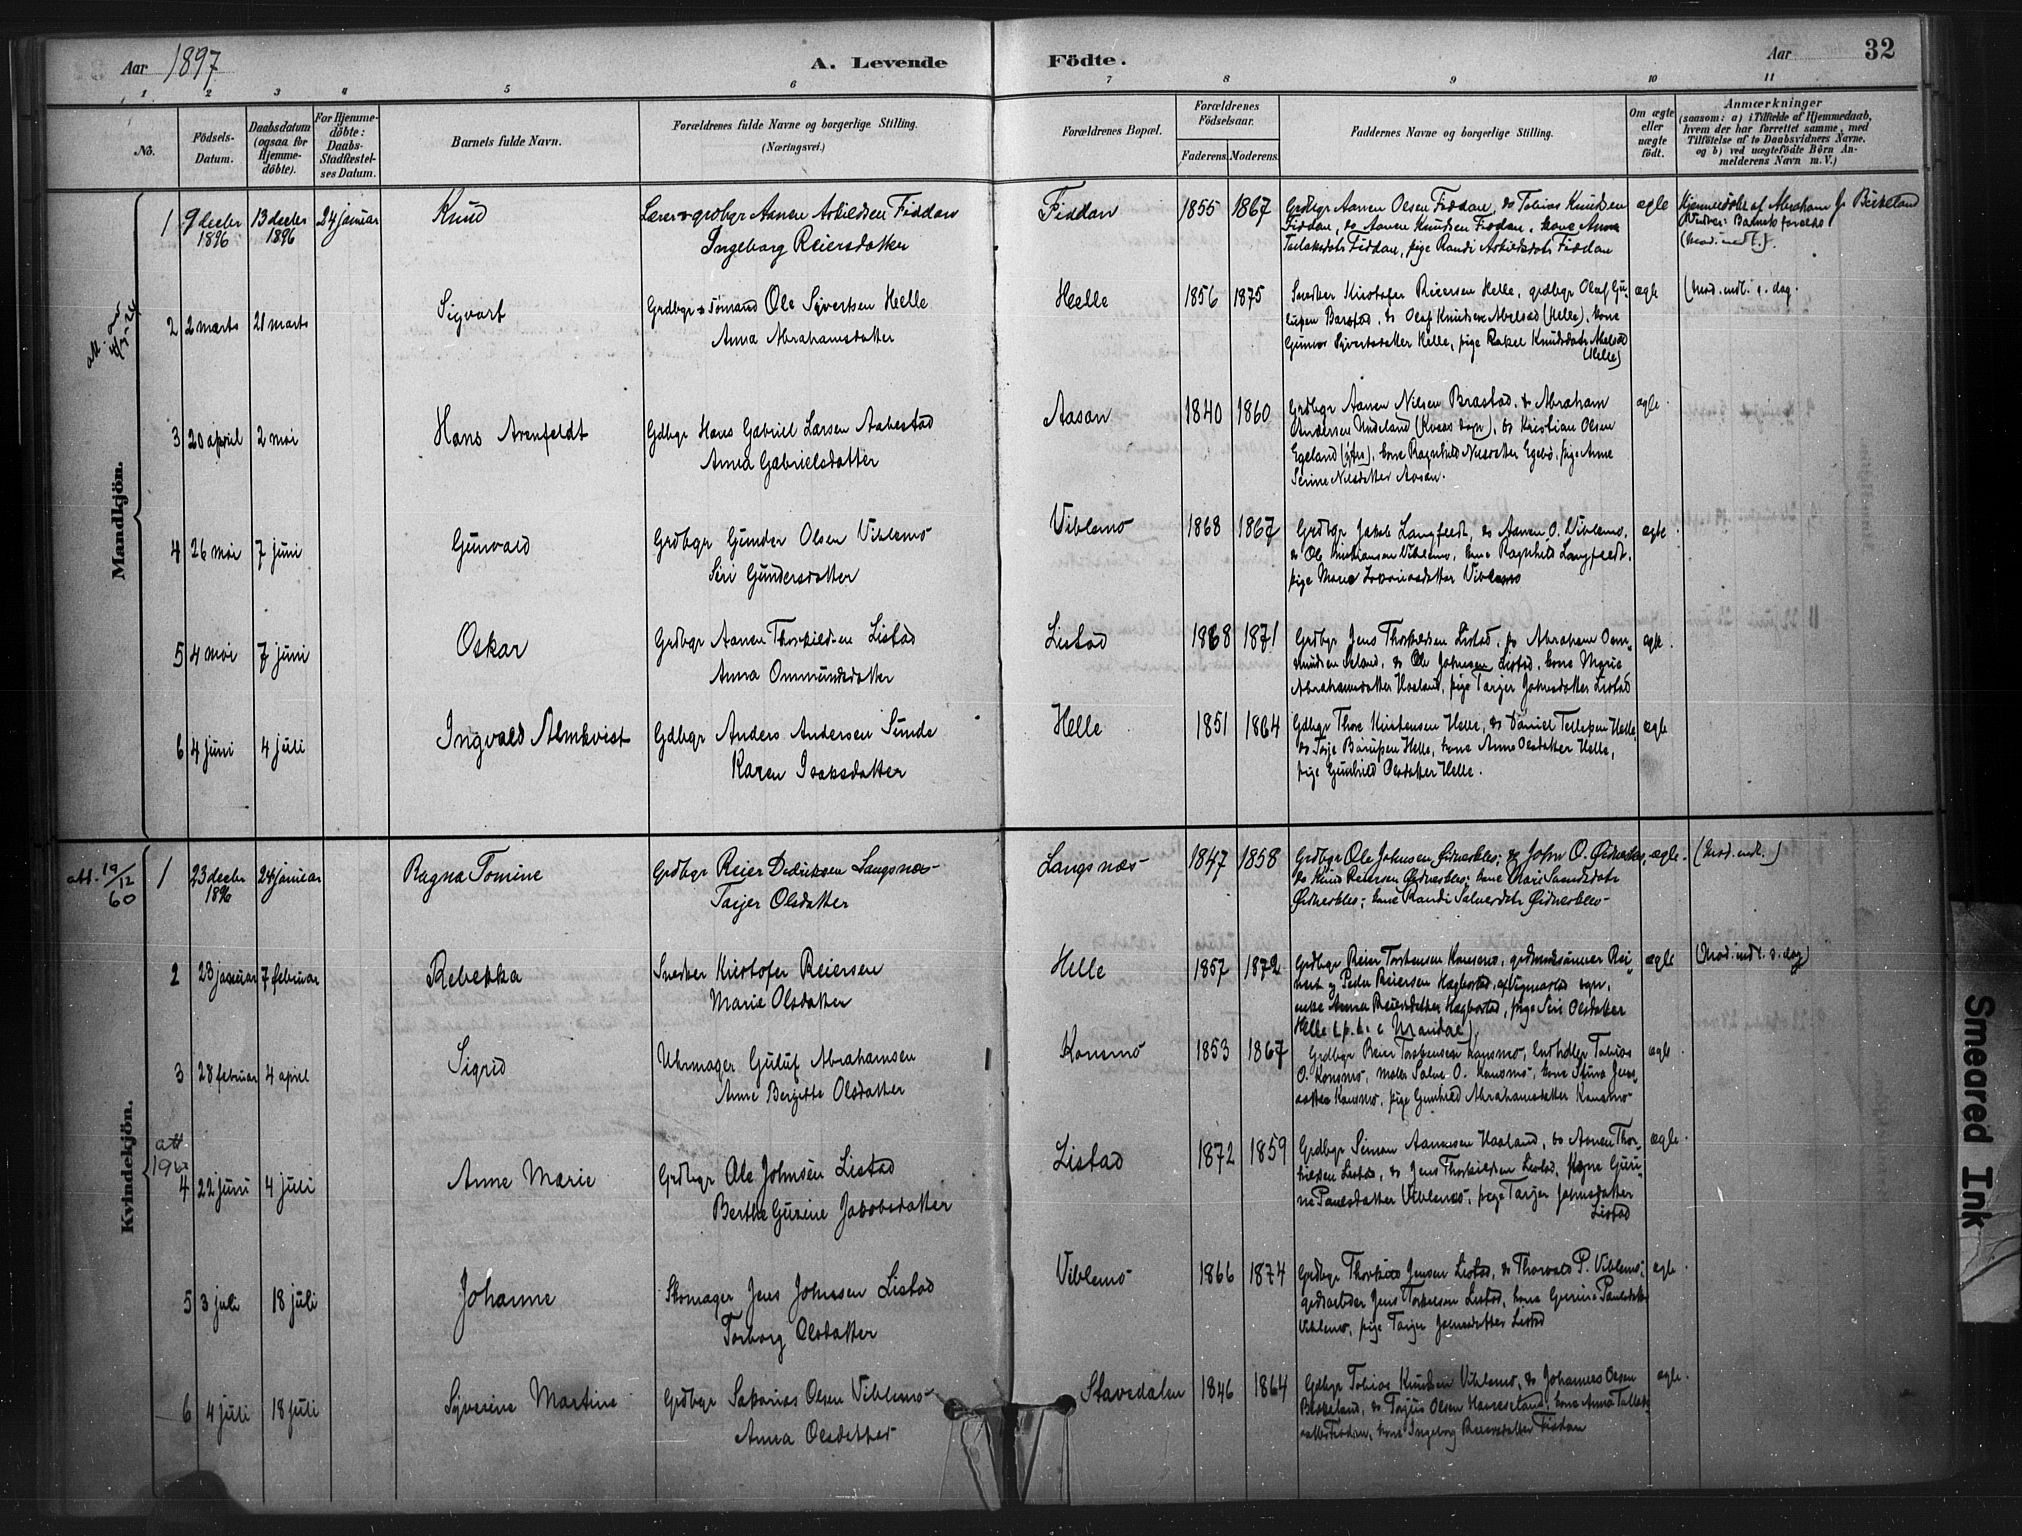 Aar 1897
A. Levende Födte.
Aar 32
1 2 3 4 5 6 7 8 9 10 11
No.
Födsels-
Datum.
Daabsdatum
(ogsaa for
Hjemme-
döbte).
For Hjemme-
döbte:
Daabs-
Stadfæstel-
ses Datum.
Barnets fulde Navn.
Forældrenes fulde Navne og borgerlige Stilling.
(Næringsvei.)
Forældrenes Bopæl.
Forældrenes
Födselsaar.
Faderens. Moderens.
Faddernes Navne og borgerlige Stilling.
Om ægte
eller
uægte
födt.
Anmærkninger
(saasom: a) i Tilfælde af Hjemmedaab,
hvem der har forrettet samme, med
Tilföielse af to Daabsvidners Navne,
og b) ved uægtefödte Börn An-
melderens Navn m. V.)
Mandkjön.
1 9 decbr 1896 13 decbr 1896 24 januar Knud
Lærer & grdbgr Aanen Askildsen Fiddan
Ingeborg Reiersdatter
Fiddan 1855 1867
Grdbgr Aanen Olsen Fiddan, do Tobias Knudsen
Fiddan, do Aanen Knudsen Fiddan, kone Anne
Fiddan, pige Randi Askildsdatr Fiddan
ægte
Hjemmedöbt af Abraham J. Birkeland
(Mod. indl.).
2 2 marts 21 marts Sigvart
Grdbgr & Sömand Ole Syvertsen Helle
Anna Abrahamsdatter
Helle 1856 1875
Snedker Kristofer Reiersen Helle, grdbgr Olaf Gu-
lufsen Barstad, do Olaf Knudsen Abelsæd (Helle), kone
Gunvor Syvertsdatter Helle, pige Rakel Knudsdatr Abelsæd
(Helle)
ægte
(Mod. indl. s. dag.
3 20 april 2 mai Hans Arenfeldt
Gdbgr Hans Gabriel Larsen Aabestad
Anna Gabrielsdatter
Aasan 1840 1860
Grdbgr Aanen Nilsen Brastad, do Abraham
Andersen Undeland (Kvaas sogn), do Kristian Olsen
Egeland, kone Ragnhild Nilsdatter Egebö, pige Anne
Serine Nilsdatter Aasan.
ægte
4 26 mai 7 juni Gunvald
Grdbgr Gunder Olsen Viblemo
Siri Gundersdatter
Viblemo 1868 1867
Grdbgr Jakob Langfeldt, do Aanen O. Viblemo,
do Ole Kristiansen Viblemo, kone Ragnhild Langfeldt,
pige Marie Viblemo
ægte
5 4 mai 7 juni Oskar
Grdbgr Aanen Thorkildsen Listad
Anna Ommundsdatter
Listad 1868 1871
Grdbgr Jens Thorkildsen Listad, do Abraham Om-
mundsen Seland, do Ole Johnsen Listad, kone Marie
Abrahamsdatter Haaland, pige Tarjer Johnsdatter Listad
ægte.
6 4 juni 4 juli Ingvald Almkvist
Gdbgr Anders Andersen Sunde
Karen Isaksdatter
Helle 1851 1864
Gdbgr Thore Kristensen Helle, do Daniel Tellefsen Helle,
do Terje Helle, kone Anne Olsdatter Helle,
pige Gunhild Olsdatter Helle.
ægte
Kvindekjön.
att. 19/12 60
1 23 decbr 1896 24 januar Ragna Tomine
Grdbgr Reier Dedriksen Langsnæs
Tarjer Olsdatter
Langsnæs 1847 1858
Grdbgr Ole Johnsen Ödnesbles; do John O. Ödnesbles,
do Knud Reiersen Ödnesbles; kone Mari
Ödnesbles; kone Randi Salvesdatr Ödnesbles
ægte. (Mod. indl.)
2 23 januar 7 februar Rebekka
Snedker Kristofer Reiersen
Marie Olsdatter
Helle 1857 1872
Grdbgr Reier Torstensen Konsmo, grdmandssönner Rei-
nert og Peder Reiersen Hægbostad, af Vigmostad sogn,
enke Anna Reiersdatter Hægbostad, pige Siri Olsdatter
Helle (p. t. i Mandal)
ægte
(Mod. indl. s. dag)
3 28 februar 4 april Sigrid
Uhrmager Guluf Abrahamsen
Anne Bergitte Olsdatter
Konsmo 1853 1867
Grdbgr Reier Torstensen Konsmo, Landhdler Tobias
O. Konsmo, maler Salve O. Konsmo, kone Stina Jens-
datter Konsmo, pige Gunhild Abrahamsdatter Konsmo
ægte
att
4 22 juni 4 juli Anne Marie
Grdbgr Ole Johnsen Listad
Berthe Gurine Jakobsdatter
Listad 1872 1859
Grdbgr Simon Aanensen Haaland, do Aanen Thor-
kildsen Listad, do Jens Thorkildsen Listad, kone Guri-
ne Paulsdatter Viblemo, pige Tarjer Johnsdatter
Listad
ægte
5 3 juli 18 juli Johanne
Skomager Jens Johnsen Listad
Torborg Olsdatter
Viblemo 1866 1874
Grdbgr Thorkild Jensen Listad, do Thorvald P. Viblemo,
grdarbeider Jens Torkelsen Listad, kone Gurine Paulsdatr
Viblemo, pige Tarjer Johnsdatter Listad
ægte
6 4 juli 18 juli Syverine Martine
Grdbgr Sakarias Olsen Viblemo
Anna Olsdatter
Stavedalen 1846 1864
Gdbgr Tobias Knudsen Viblemo, do Johannes Olsen
Birkeland, do Torjus Olsen, kone Anna Tallaks-
datter Fiddan, kone Ingeborg Reiersdatter Fiddan
ægte.
Smeared Ink